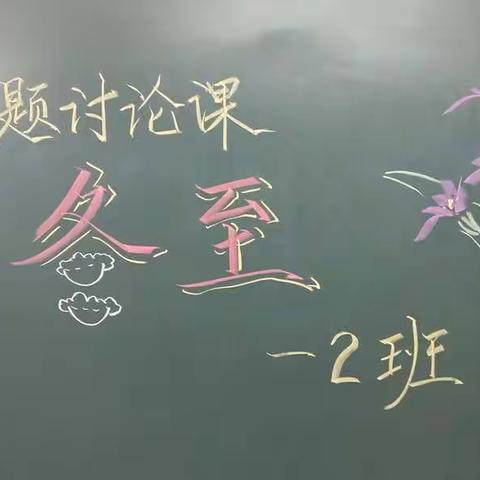 题讨论课
冬至
一2班